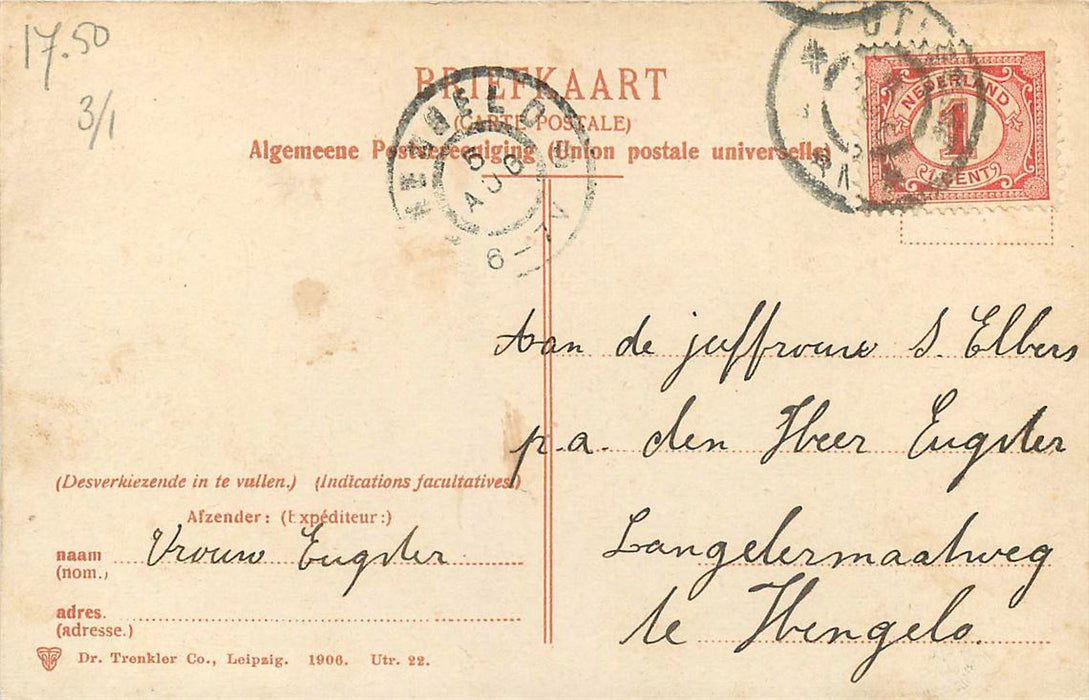 17.50
3/1
BRIEFKAART
(CARTE POSTALE)
Algemeene Postvereeniging (Union postale universelle)
HENGELO
5 AUG
6-7
NEDERLAND
1
1 CENT
Aan de juffrouw S. Elbers
p.a. den Heer Eugster
Langelermaatweg
te Hengelo.
(Desverkiezende in te vullen.) (Indications facultatives)
Afzender: (Expéditeur:)
naam Vrouw Eugster
(nom.)
adres.
(adresse.)
Dr. Trenkler Co., Leipzig. 1906. Utr. 22.